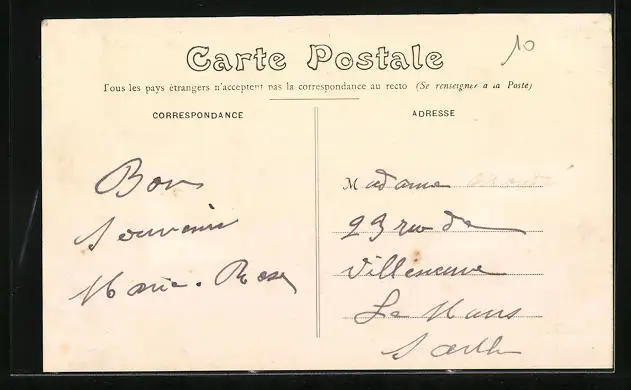 10
Carte Postale
Tous les pays étrangers n'acceptent pas la correspondance au recto (Se renseigner à la Poste)
CORRESPONDANCE
Bon
Souvenir
Marie-Rose
ADRESSE
Madame
23 rue de
Villeneuve
Le Mans
Sarthe